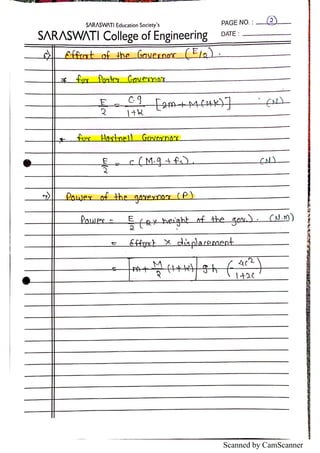 SARASWATI Education Society's
SARASWATI College of Engineering
PAGE NO. : (2)
DATE :
Effort of the Governor (E/2).
* for Porter Governor
E/2 = c.g/1+k [2m+M(1+k)] (N)
* for Hartnell Governor
E/2 = c (M.g + fs). (N)
7) Power of the governor (P)
Power = E/2 (2x height of the gov.). (N.m)
= Effort x displacement
= [m + M/2 (1+k)] g h (4c²/1+2c)
Scanned by CamScanner